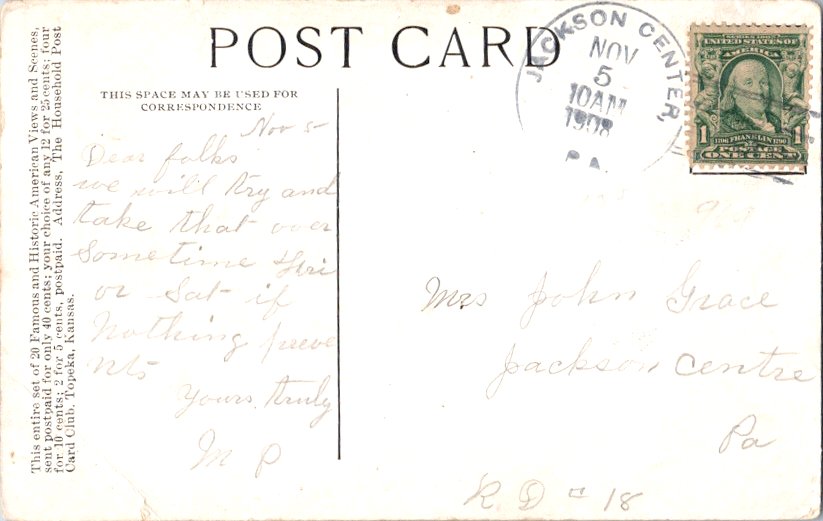 POST CARD
THIS SPACE MAY BE USED FOR
CORRESPONDENCE
This entire set of 20 Famous and Historic American Views and Scenes,
sent postpaid for only 40 cents; your choice of any 12 for 25 cents; four
for 10 cents; 2 for 5 cents, postpaid. Address, The Household Post
Card Club, Topeka, Kansas.
JACKSON CENTER,
NOV
5
10AM
1908
PA.
SERIES 1902
UNITED STATES OF
AMERICA
1 1
1706 FRANKLIN 1790
POSTAGE
ONE CENT
Nov 5-
Dear folks
we will try and
take that over
Sometime Fri
or Sat if
Nothing preve
nts
Yours truly
M P
Mrs John Grace
Jackson Centre
Pa
R D 18